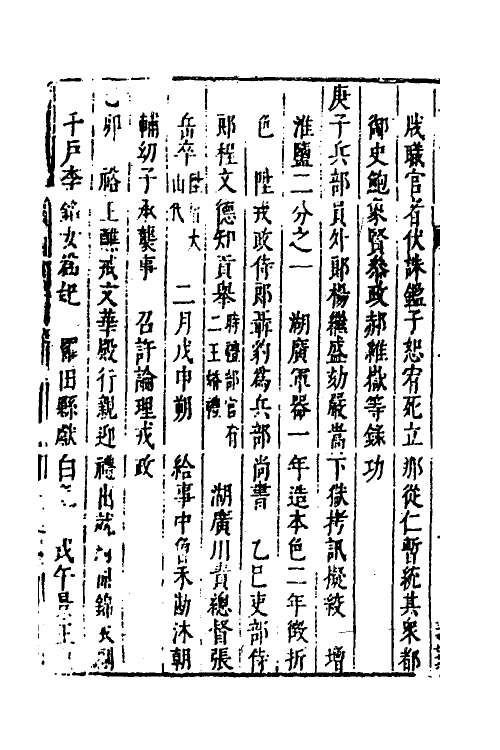 戕職官者伏誅鑑于恕宥死立那從仁暫統其衆都
御史鮑象賢叅政郝維嶽等錄功
庚子兵部員外郎楊繼盛劾嚴嵩下獄拷訊擬絞 增
淮鹽二分之一 湖廣軍器一年造本色二年徵折
色 陞戎政侍郎聶豹爲兵部尚書 乙巳吏部侍
郎程文德知貢舉時禮部官有二王婚禮 湖廣川貴總督張
岳卒 二月戊申朔 給事中魯禾勘沐朝
輔幼子承襲事 召許論理戎政
卯 裕王醮戒文華殿行親迎禮出就
千戶李銘女 羅田縣獻白 戊午景王